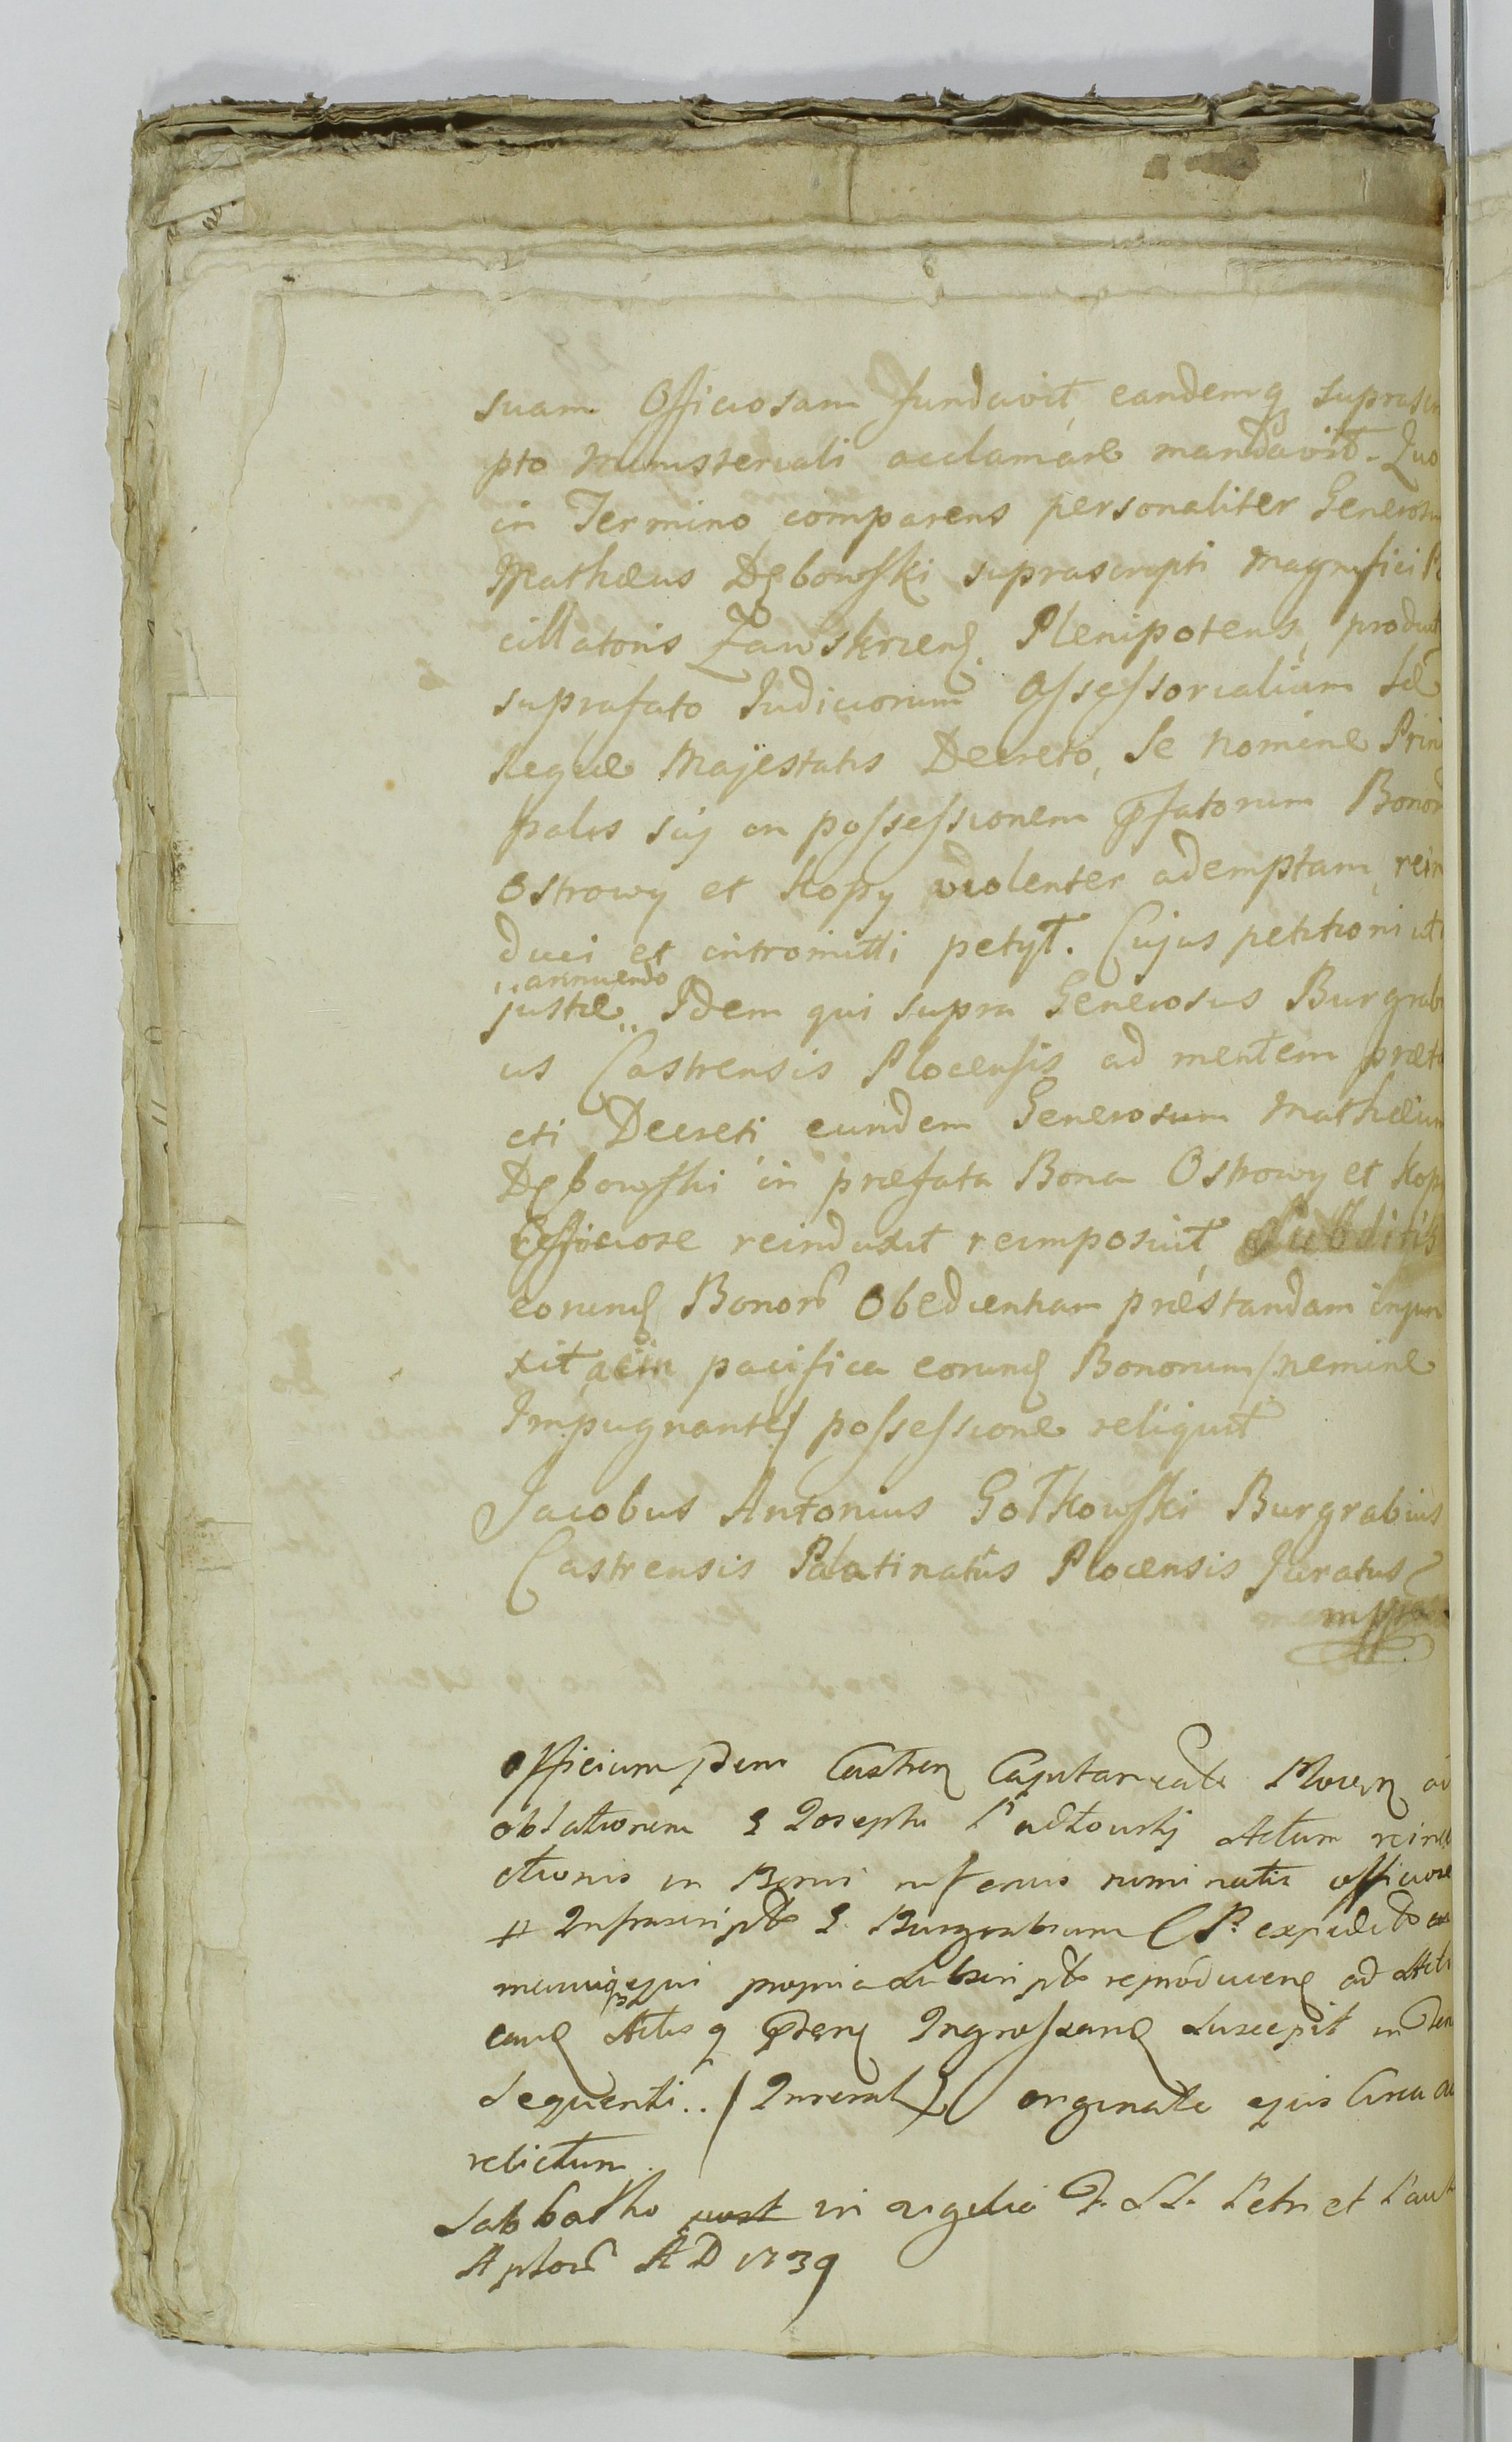 suam Officiosam fundavit, eandemq suprascri
pto Ministeriali acclamare mandavit. Quo
in Termino comparens personaliter Generosus
Mathæus Dębowski suprascripti Magnifici Po
cillatoris Zawskrzen. Plenipotens, produ
suprafato Judiciorum Assessorialium Sæ
Regiæ Majestatis Decreto, Se nomine Prin
palis sui in possessionem pfatorum Bonor
Ostrowy et Kopy violenter ademptam, rein
duci et intromitti petyt. Cujus petitioni uti
,,annuendo
justæ,, Idem qui supra Generosus Burgrabi
us Castrensis Plocensis ad mentem præt
cti Decreti eundem Generosum Mathæum
Dębowski in præfata Bona Ostrowy et Kop
Officiose reinduxit reimposuit, Subditis
eorund Bonor Obedientiam præstandam injun
xit ac in pacifica eorund Bonorum /nemine
Impugnante/ possessione reliquit
Jacobus Antonius Gołkowski Burgrabius
Castrensis Palatinatus Plocensis Juratus
mppa
Officium pdens Castren Capitaneale Plocen ad
oblationem G Josephi Actum reindu
ctionis in Bona inferius nominata officiose
# Infrascripto G. Burgrabium C P. expedit
manuq ejus propria subscript reproducen ad Acti
cand Actisq pden Ingrossand suscepit in ten
sequenti.. (Inserat) originale ejus circa ac
relictum.
Sabbatho post in vigilia F. SS. Petri et Pauli
Aplor AD 1739